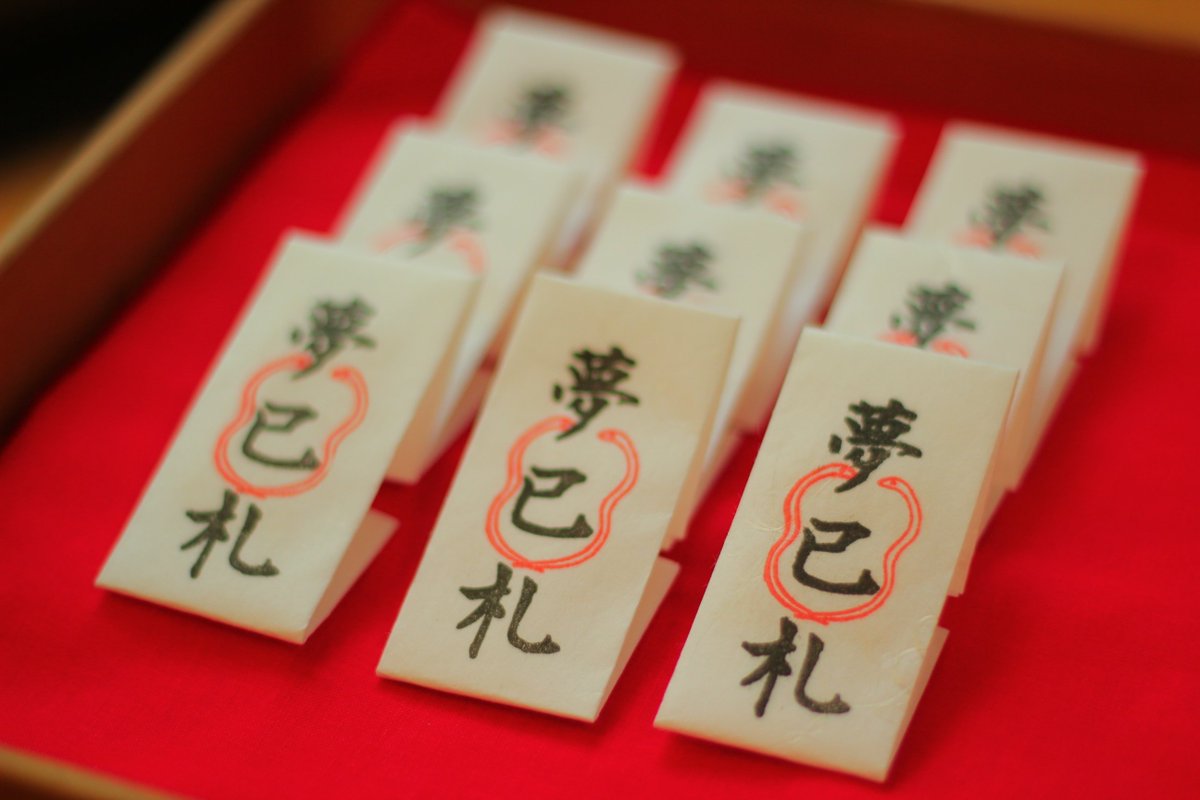 夢
夢
夢
夢
夢
夢
夢巳札
夢巳札
夢巳札